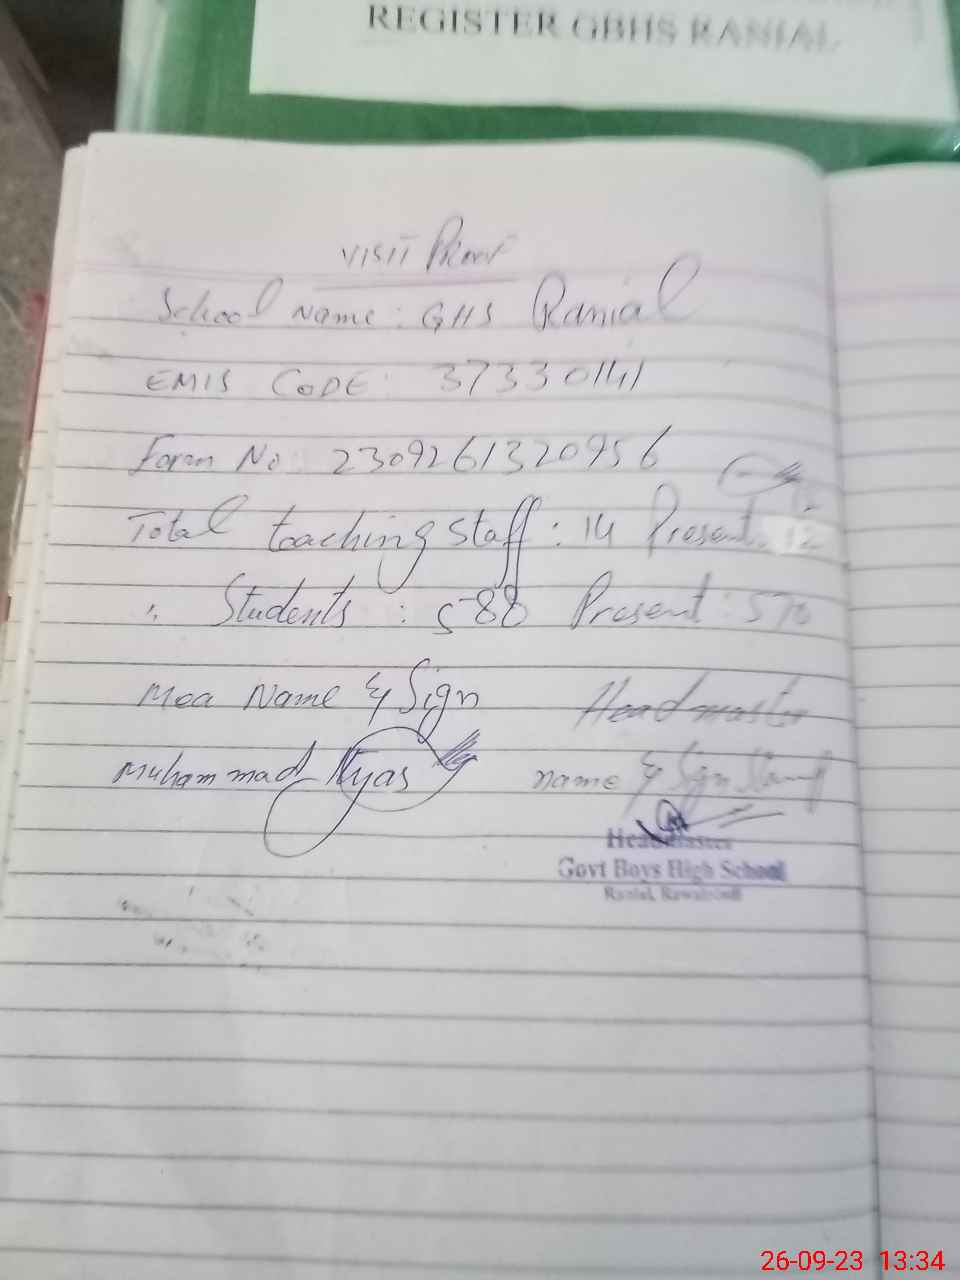 REGISTER GBHS RANIAL
VISIT Proof
School Name: GHS Ranial
EMIS CODE: 37330141
Form No: 2309261320956
12
Total teaching staff: 14 Present: 12
" Students: 588 Present: 570
Mea Name & Sign Headmaster
Muhammad Ilyas name & Sign Stamp
Headmaster
Govt Boys High School
Ranial, Rawalpindi
26-09-23 13:34